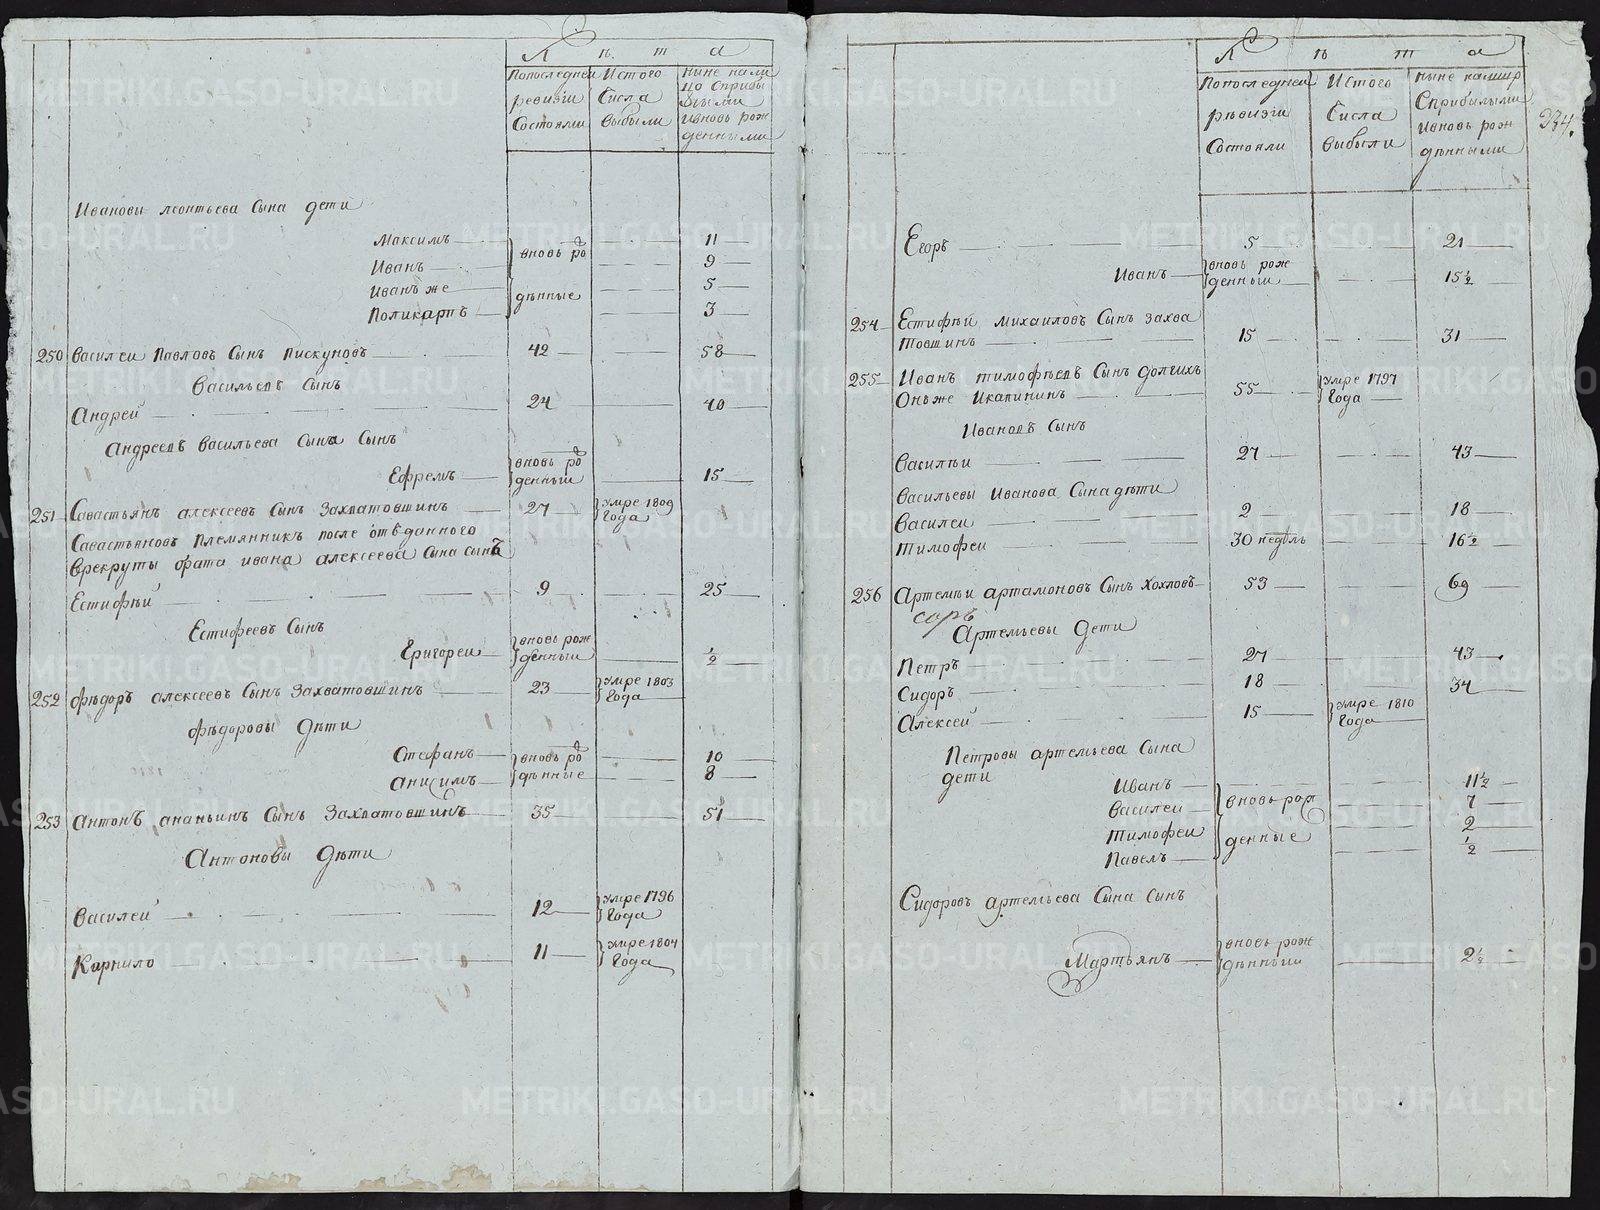 Лѣта
Попоследней Истого ныне нали
ревизiи Числа цо Сприбы
Состояли выбыли лыми
ивновь рож
денными
Иванови леонтьева Сына дети
Максимъ вновь ро 11
Иванъ 9
Иванъ же дѣнные 5
Поликарпъ 3
250 Василеи Павловъ Сынъ Пискуновъ 42 58
Васильевъ Сынъ
Андрей 24 40
Андреевъ Васильева Сына Сынъ
Ефремъ вновь ро денный 15
251 Савастьянъ алексеевъ Сынъ Захватовшинъ 27 умре 1809 Года
Савастьяновъ Племянникъ после отѣданного
Врекруты брата ивана алексеева Сына Сынъ
Естифѣй 9 25
Естифеевъ Сынъ
Григореи вновь рож денный 1/2
252 Фѣдоръ алексеевъ Сынъ Захватовшинъ 23 умре 1803 Года
Фѣдоровы Дѣти
Стефанъ вновь ро 10
Анисимъ дѣнные 8
253 Антонъ ананьинъ Сынъ Захватовшинъ 35 51
Антоновы Дѣти
Василей 12 умре 1796 Года
Карнило 11 умре 1804 Года
Лѣта
234.
Попоследней Истого ныне налицо
рѣвизiи Числа Сприбылыми
Состояли выбыли ивновь рож
дѣнными
Егоръ 5 21
Иванъ вновь рож денный 15 1/2
254 Естифѣй Михаиловъ Сынъ захва
товшинъ 15 31
255 Иванъ тимофѣевъ Сынъ долгихъ
Онъже Икапининъ 55 умре 1797 Года
Ивановъ Сынъ
Василѣи 27 43
Васильевы Иванова Сына дѣти
Василеи 2 18
Тимофеи 30 недѣль 16 1/2
256 Артемѣи артамоновъ Сынъ Хохловъ 53 69
соръ
Артемьевы Дети
Петръ 27 43
Сидоръ 18 34
Алексей 15 умре 1810 Года
Петровы артемьева Сына
дети Иванъ 11 1/2
Василей вновь рож 7
Тимофеи денные 2
Павелъ 1/2
Сидоровъ артемьева Сына Сынъ
Мартьянъ вновь рож дѣнный 2 1/2
METRIKI.GASO-URAL.RU